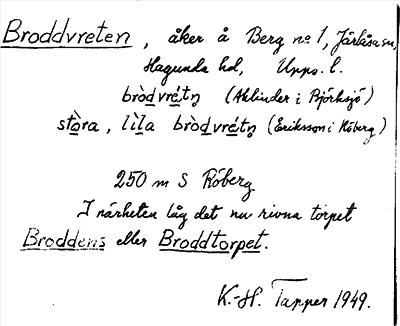 Broddvreten, åker å Berg no 1, Järlåsa sn,
Hagunda hd, Upps. l.
bròdvrétn̥ (Ahlinder i Björksjö)
stòra, lìla bròdvrétn̥ (Eriksson i Röberg)
250 m S Röberg
I närheten låg det nu rivna torpet
Broddens eller Broddtorpet.
K.-H. Tapper 1949.